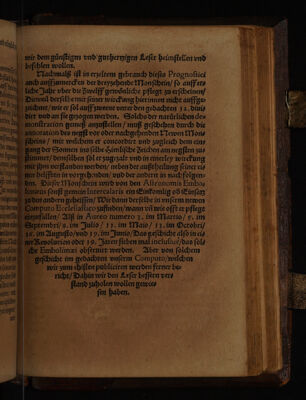 wir dem günstigen vnd guthertzigen Leser heimstellen vnd
befehlen wollen.
Nachmals ist in erzeltem gebrauch dieses Prognostici
auch auffzumercken der Monschein/ so auffer-
liche Jahr vber die zwelff gewönliche pflegt zu erscheinen/
Dieweil derselbe mit seiner wirckung hierinnen nicht auffge-
zeichnet/ wie er sol auff zuvor vnter den gedachten 12. divi-
dirt vnd an sie gezogen werden. Solchs der natürlichen de-
monstration gemeß anzustellen/ muß geschehen durch die
annotation des negst vor oder nachgehenden Newen Mons
scheins/ mit welchem er concordirt vnd zugleich dem ein-
gang der Sonnen ins selbe Himlische Zeichen am negsten zu-
stimmet/ demselben sol er zugezalt vnd in einerley wirckung
mit ihm verstanden werden/ neben der außtheilung seiner ei-
nen helfften in vorgehenden/ vnd der andern in nachfolgen-
den. Dieser Monschein wird von den Astronomis Embo-
limaus sonst mensis Intercalaris ein Einkömlig
zu den andern geheissen/ Wie dann derselbe in vnserm newen
Computo Ecclesiastico zufinden/ wann vnd wie offt er pflegt
einzufallen/ Als in Aureo numero 2. im Martio/ 5. im
Septembri/ 8. im Julio/ 11. im Maio/ 13. im Octobri/
16. im Augusto/ vnd 19. im Junio/ Das geschicht also in ei-
ner Revolution oder 19. Jaren sieben mal inclusiuè/ das sol-
che Embolismi obseruirt werden. Aber von solchem
geschicht im gedachten vnserm Computo/ welchen
wir zum ehisten publiciren werden ferner be-
richt/ Dahin wir den Leser bessern ver-
stand zuholen wollen gewie-
sen haben.